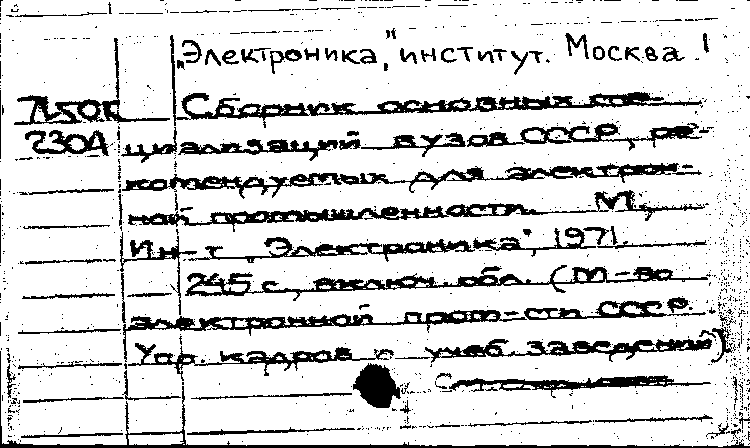 „Электроника," институт. Москва 1
Сборник основных спе-
2304 циализаций вузов СССР, ре-
комендуемых для электрон-
ной промышленности. М.,
Ин-т „Электроника", 1971.
245 с., включ. обл. (М-во
электронной пром-сти СССР.
Упр. кадров и учеб. заведений)